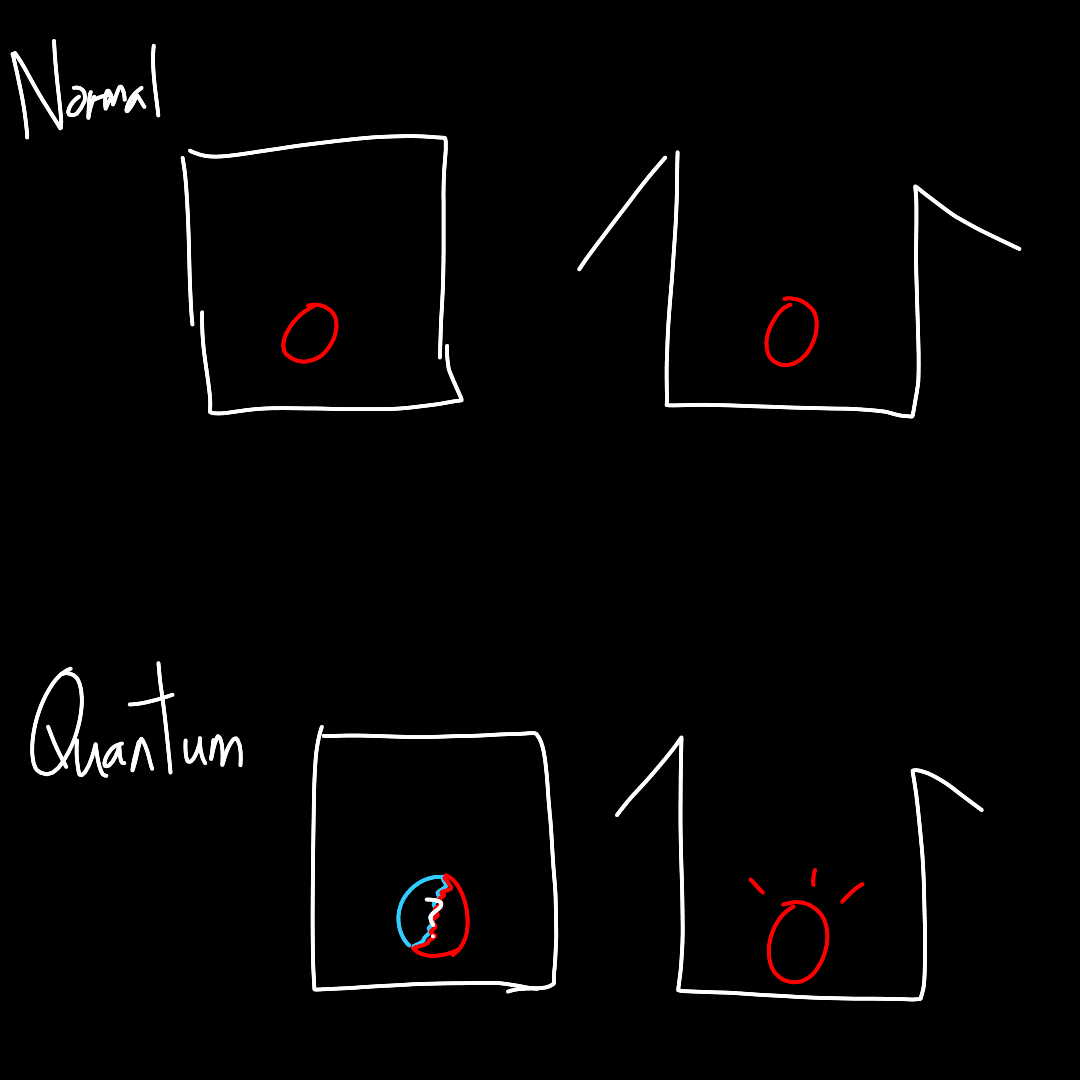 Normal
Quantum
?